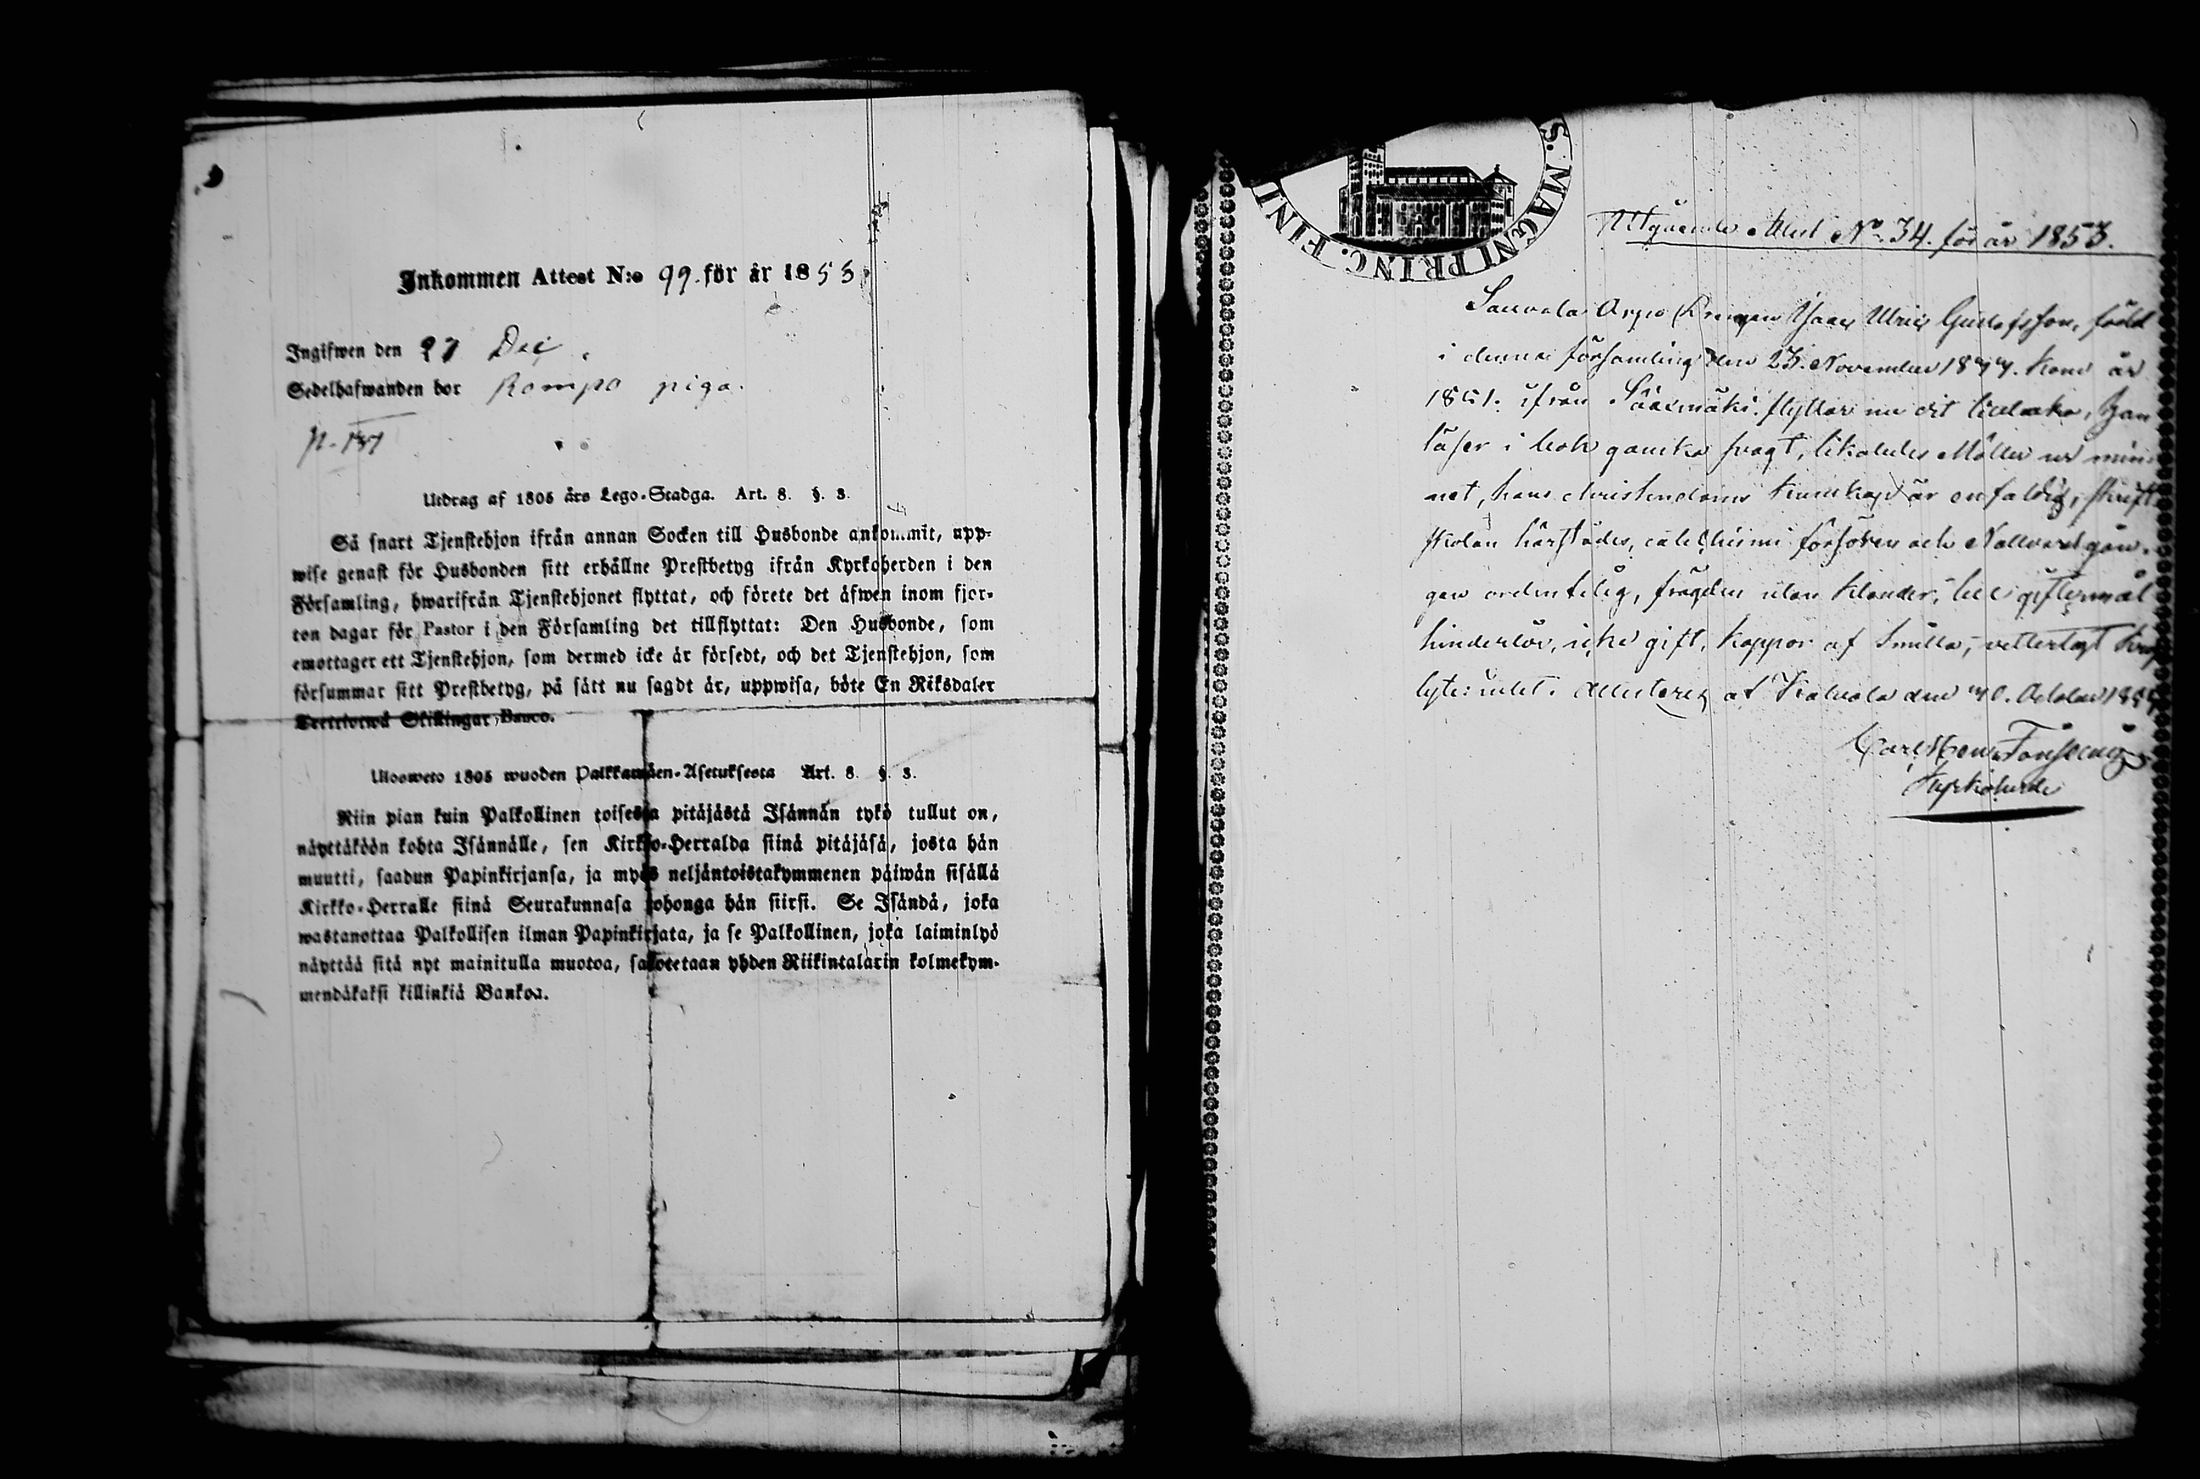 Inkommen Attest N:o 99. för år 1853
Ingifwen den 27 Dec.
Sedelhafwanden bor Rompo piga.
Utdrag af 1805 års Lego-Stadga. Art. 8. §. 3.
Så snart Tjenstehjon ifrån annan Socken till Husbonde ankommit, upp-
wise genast för Husbonden sitt erhållne Prestbetyg ifrån Kyrkoherden i den
Församling, hwarifrån Tjenstehjonet flyttat, och förete det äfwen inom fjor-
ton dagar för Pastor i den Församling det tillflyttat: Den Husbonde, som
emottager ett Tjenstehjon, som dermed icke är försedt, och det Tjenstehjon, som
försummar sitt Prestbetyg, på sätt nu sagdt är, uppwisa, böte En Riksdaler
Trettiotwå Skillingar, Banco.
Ulosweto 1805 wuoden Palkkawäen-Asetuksesta Art. 8. §. 3.
Niin pian kuin Palkollinen toisesta pitäjästä Isännän tykö tullut on,
näyttäköön kohta Isännälle, sen Kirkko-Herralda siinä pitäjäsä, josta hän
muutti, saadun Papinkirjansa, ja myös neljäntoistakymmenen päiwän sisällä
Kirkko-Herralle siinä Seurakunnasa johonga hän siirsi. Se Isändä, joka
wastanottaa Palkollisen ilman Papinkirjata, ja se Palkollinen, joka laiminlyö
näyttää sitä nyt mainitulla muotoa, sakotetaan yhden Riikintalarin kolmekym-
mendäkaksi killinkiä Bankoa.
S. MAGNI PRINC. FINL
Utgående Attest No 34. för år 1853.
Sauvala Arpo Drengen Isaac Ulric Gustafsson, född
i denna församling den 23. November 18 kom år
1851. ifrån Sääxmäki. flyttar nu dit tillbaka, Han
läser i bok ganska svagt, likaledes Möller ur min-
net, hans christendoms kunskap är enfaldig, skrift
skolan härstädes, catechismi förhören och Nattvard gån-
gen ordentelig, frägden utan klander, till giftermål
hinderlös, icke gift, koppor af Smitta, vetterligt
lyte: intet. Attesterar af Kalvola den October
Carl
Kyrkoherde